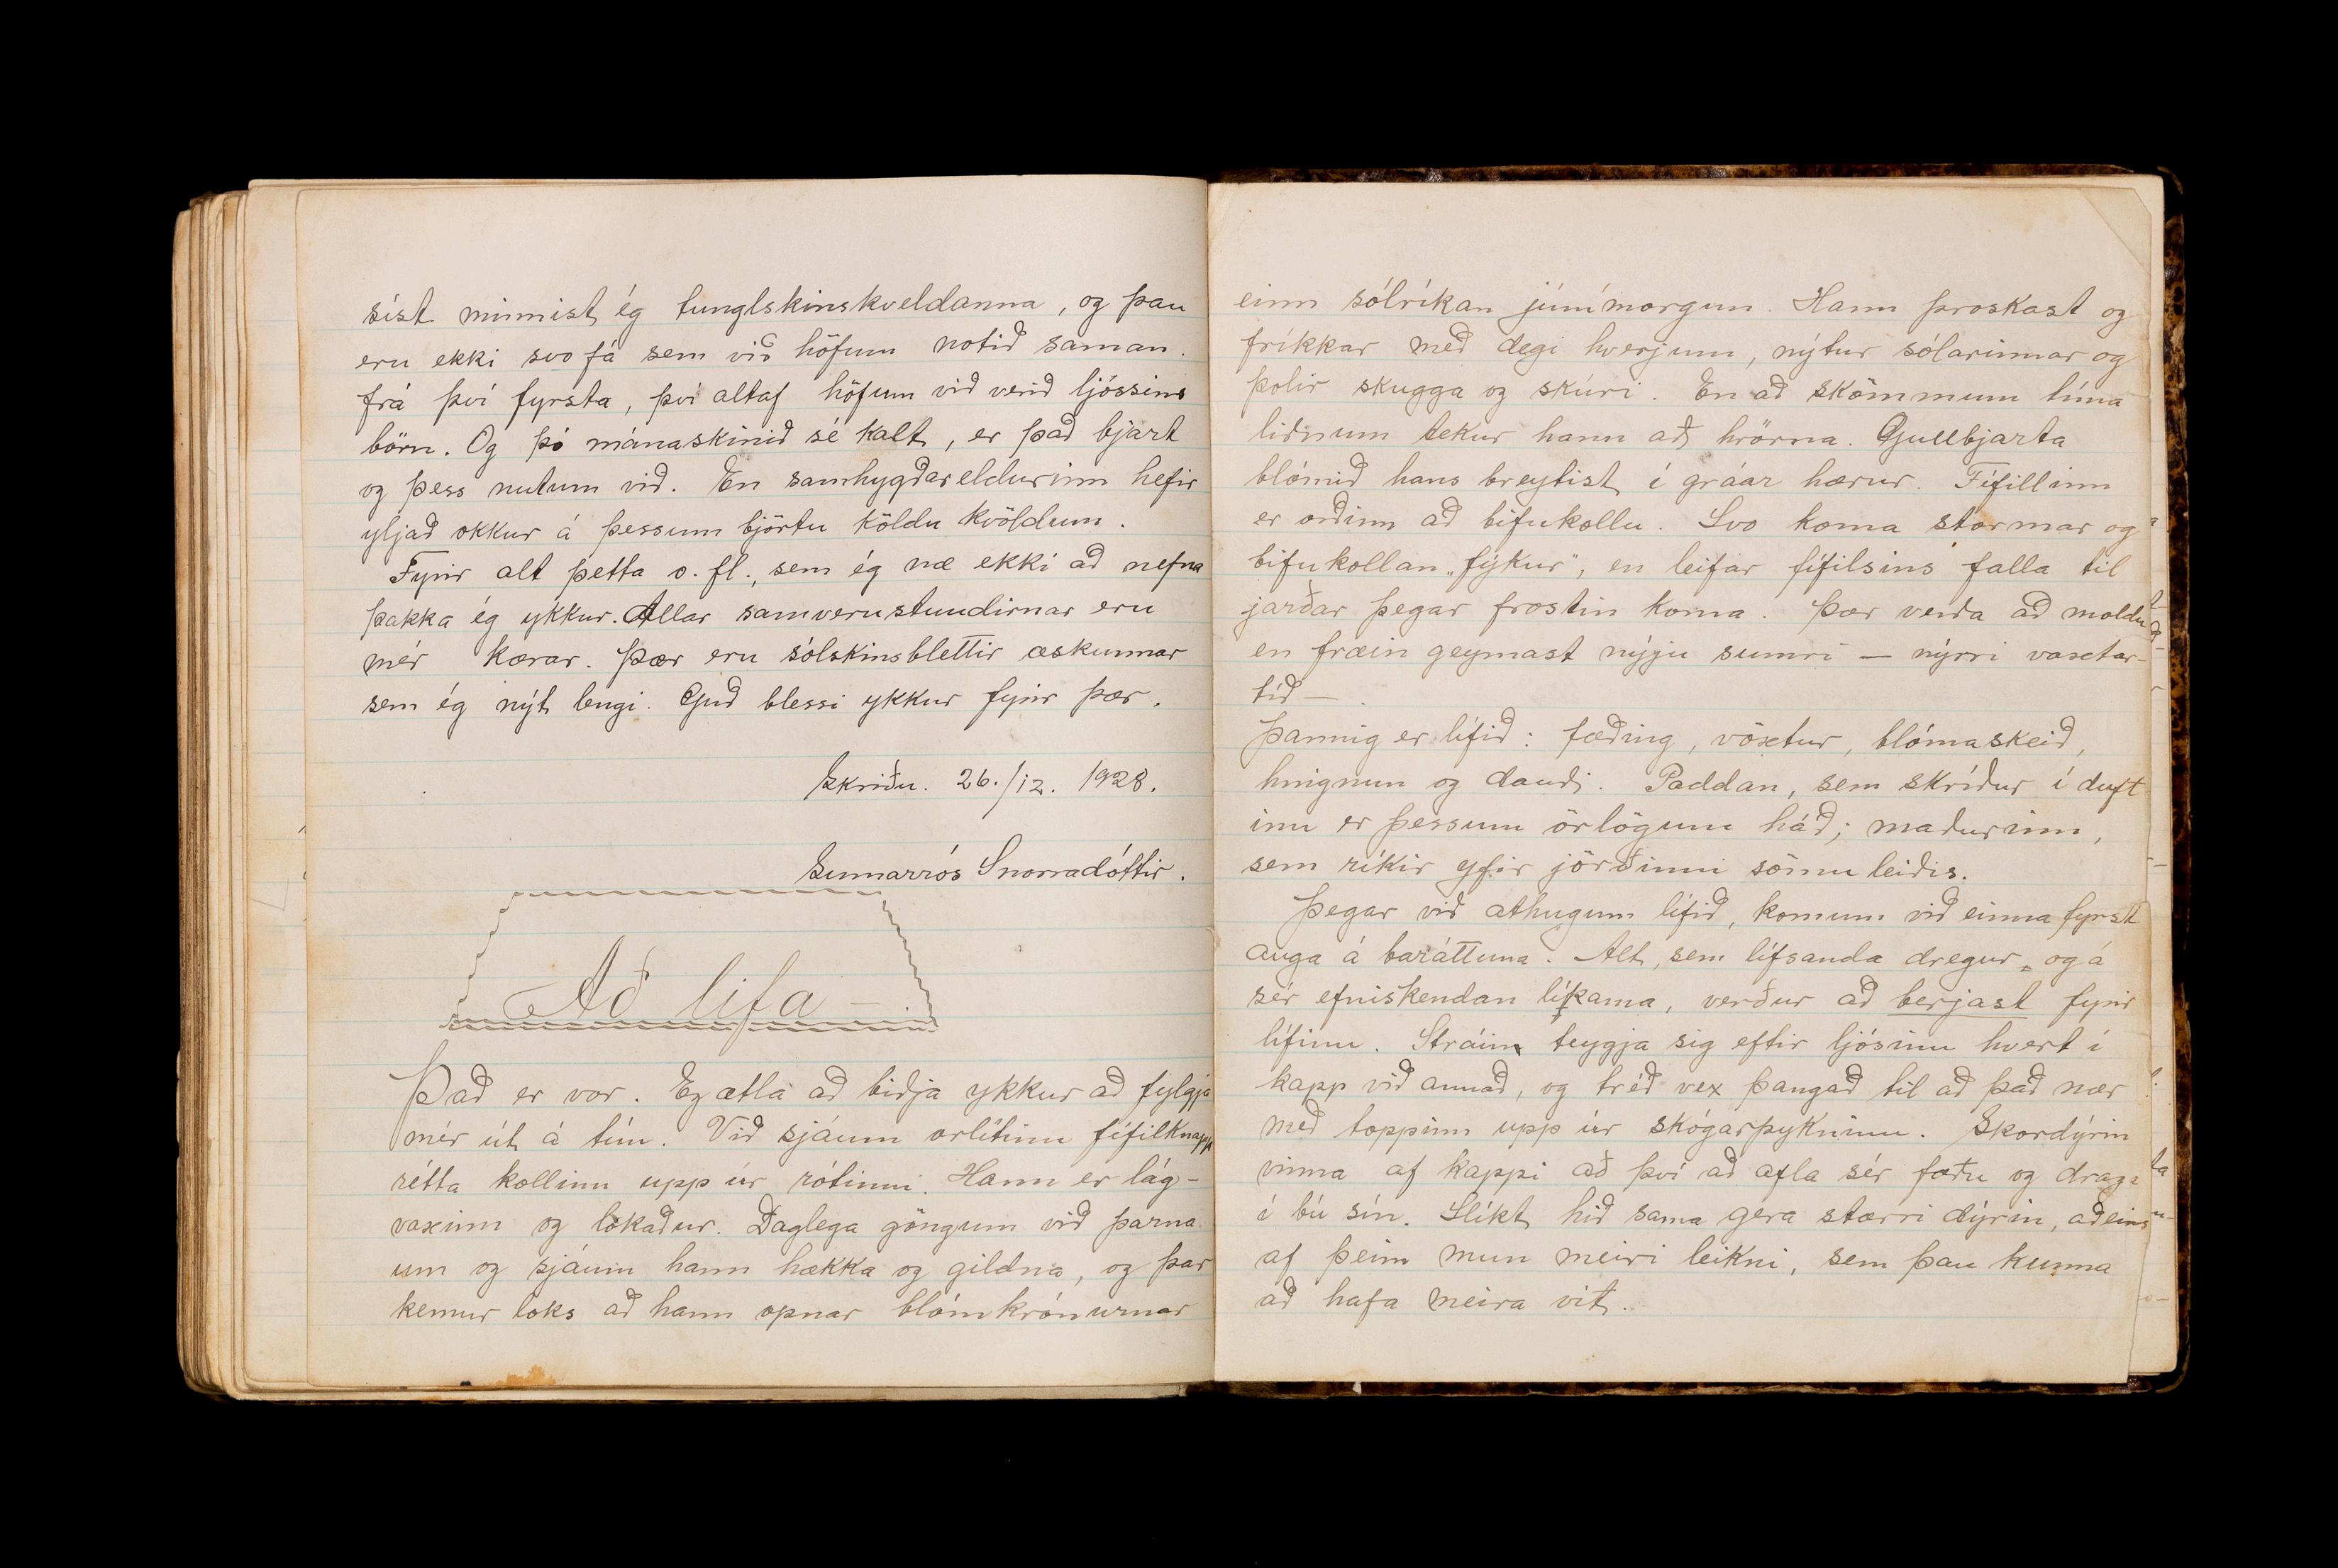 síst minnist ég tunglskinskveldanna, og þau
eru ekki svo fá sem við höfum notið saman.
frá því fyrsta, því altaf höfum við verið ljóssins
börn. Og þó mánaskinið sé kalt, er það bjart
og þess nutum við. En samhygðareldurinn hefir
yljað okkur á þessum björtu köldu kvöldum.
Fyrir alt þetta o.fl., sem ég næ ekki að nefna
þakka ég ykkur. Allar samverustundirnar eru
mér kærar. Þær eru sólskinsblettir æskunnar
sem ég nýt lengi. Guð blessi ykkur fyrir þær.
Skriðu. 26./12. 1928.
Sunnarrós Snorradóttir.
Að lifa —
Það er vor. Eg ætla að biðja ykkur að fylgja
mér út á tún. Við sjáum orlítinn fífilknapp
rétta kollinn upp úr rótinni. Hann er lág-
vaxinn og lokaður. Daglega göngum við þarna
um og sjáum hann hækka og gildna, og þar
kemur loks að hann opnar blómkrónurnar
einn sólríkan júnímorgun. Hann þroskast og
fríkkar með degi hverjum, nýtur sólarinnar og
þolir skugga og skúri. En að skömmum tíma
liðnum tekur hann að hrörna. Gullbjarta
blómið hans breytist í gráar hærur. Fífillinn
er orðinn að bifukollu. Svo koma stormar og
bifukollan „fýkur", en leifar fífilsins falla til
jarðar þegar frostin koma. Þær verða að moldu
en fræin geymast nýju sumri — nýrri vaxtar-
tíð —
Þannig er lífið: fæðing, vöxtur, blómaskeið,
hnignun og dauði. Paddan, sem skríður í duft
inu er þessum örlögum háð; maðurinn,
sem ríkir yfir jörðinni sömuleiðis.
Þegar við athugum lífið, komum við einna fyrst
auga á baráttuna. Alt, sem lífsanda dregur, og á
sér efniskendan líkama, verður að berjast fyrir
lífinu. Stráin teygja sig eftir ljósinu hvert í
kapp við annað, og tréð vex þangað til að það nær
með toppinn upp úr skógarþykninu. Skordýrin
vinna af kappi að því að afla sér fæðu og draga
í bú sín. Slíkt hið sama gera stærri dýrin, aðeins
af þeim mun meiri leikni, sem þau kunna
að hafa meira vit.